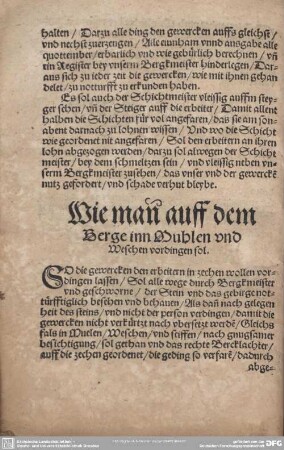 halten / Dartzu alle ding den gewercken auffs gleichst /
vnd nechst zuertzeugen / Alle einnham vnnd ausgabe alle
quottember / erbarlich vnd wie gebürlich berechnen / vñ
ein Register bey vnserm Bergkmeister hinderlegen / Dar-
aus sich zu ieder zeit die gewercken / wie mit ihnen gehan
delet / zu notturfft zu erkunden haben.
Es sol auch der Schichtmeister vleissig auffin steyger
sehen / vñ der Steiger auff die erbeiter / Damit allent
halben die Schichten für vol angefaren / das sie am son-
abent darnach zu lohnen wissen / Vnd wo die Schicht
wie geordenet nit angefaren / Sol den erbeitern an ihren
lohn abgezogen werden / dar zu sol alwegen der Schicht
meister / bey dem schmeltzen sein / vnd vleissig neben vn-
serm Bergkmeister zusehen / das vnser vnd der gewerckẽ
nutz gefordert / vnd schade verhut bleybe.
Wie man auff dem
Berge inn Muhlen vnd
Weschen vordingen sol.
SO die gewercken den erbeitern in zechen wollen vor-
dingen lassen / Sol alle wege durch Bergkmeister
vnd geschworne / der Stein vnd das gebirge not-
türfftiglich besehen vnd behauen / Als dañ nach gelegen
heit des steins / vnd nicht der person verdingen / damit die
gewercken nicht verkürtzt nach vbersetzt werdẽ / Gleichs
fals in Mulen / Weschen / vnd seiffen / nach gnugsamer
besichtigung / sol gethan vnd das rechte Bercklachter /
auff die zechen geordenet / die geding so verfarẽ / dadurch
abge-